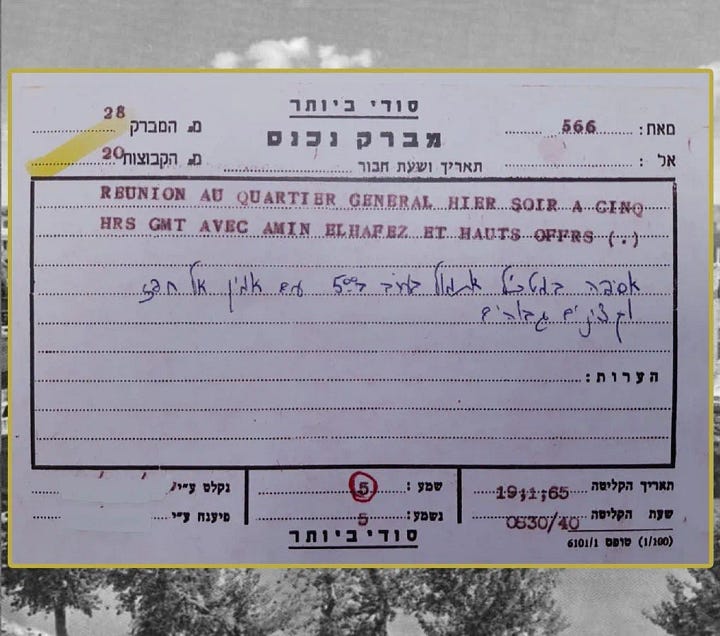 סודי ביותר
מברק נכנס
מאת: 566
מ. המברק 28
אל:
תאריך ושעת חבור
מ. הקבוצות 20
REUNION AU QUARTIER GENERAL HIER SOIR A CINQ
HRS GMT AVEC AMIN ELHAFEZ ET HAUTS OFFRS (.)
אספה במטכ"ל אתמול בערב עם אמין אל חפז
וקצינים גבוהים
הערות:
תאריך הקליטה 19;1;65
שמע: 5
נקלט ע"י
שעת הקליטה 0830/40
נשמע: 5
פיענח ע"י
סודי ביותר
6101/1 טופס (1/100)